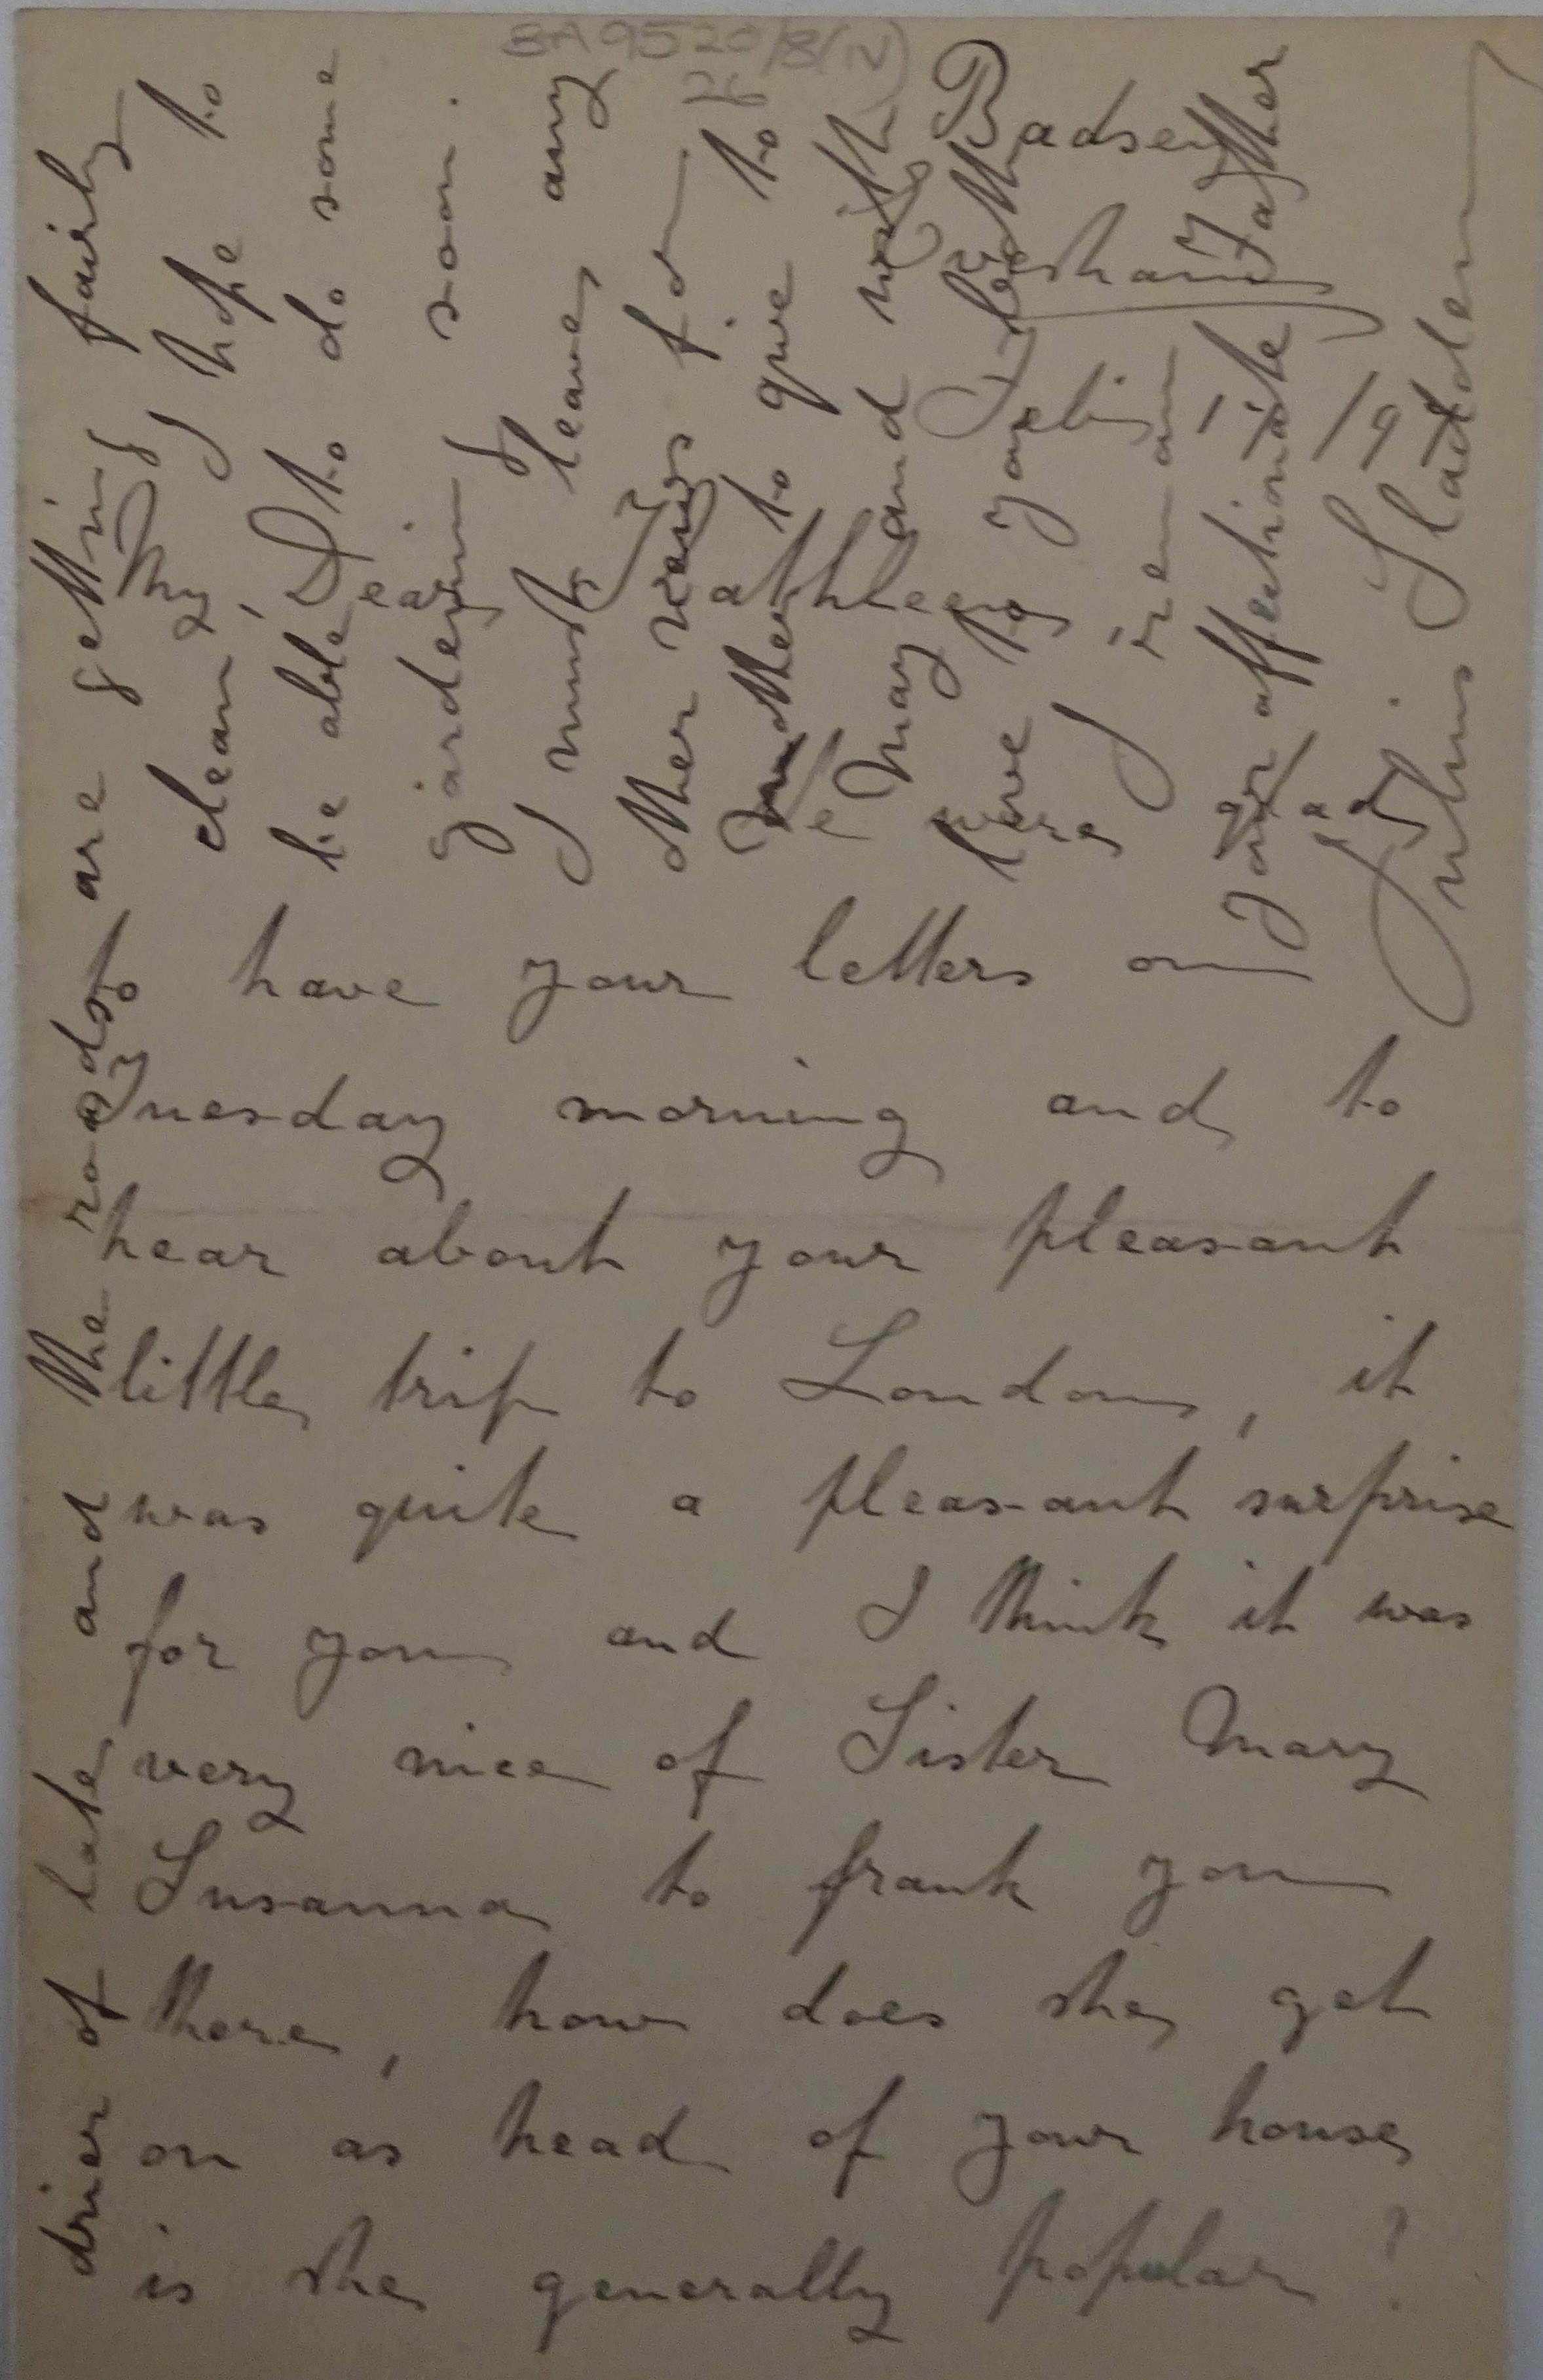 BA 9520/8(IV)
26
Badsey
Evesham
My Dear Kathleen
We were glad
to have your letters on
Tuesday morning and to
hear about your pleasant
little trip to London, it
was quite a pleasant surprise
for you and I think it was
very nice of Sister Mary
Susanna to frank you
there, how does she get
on as head of your house
is she generally popular?
drier of late and the roads are getting fairly
clean, I hope to
be able to do some
gardening soon.
I must leave any
other news for
Mother to give to
May and with
love to you both
I remain
your affectionate Father
Julius Sladden